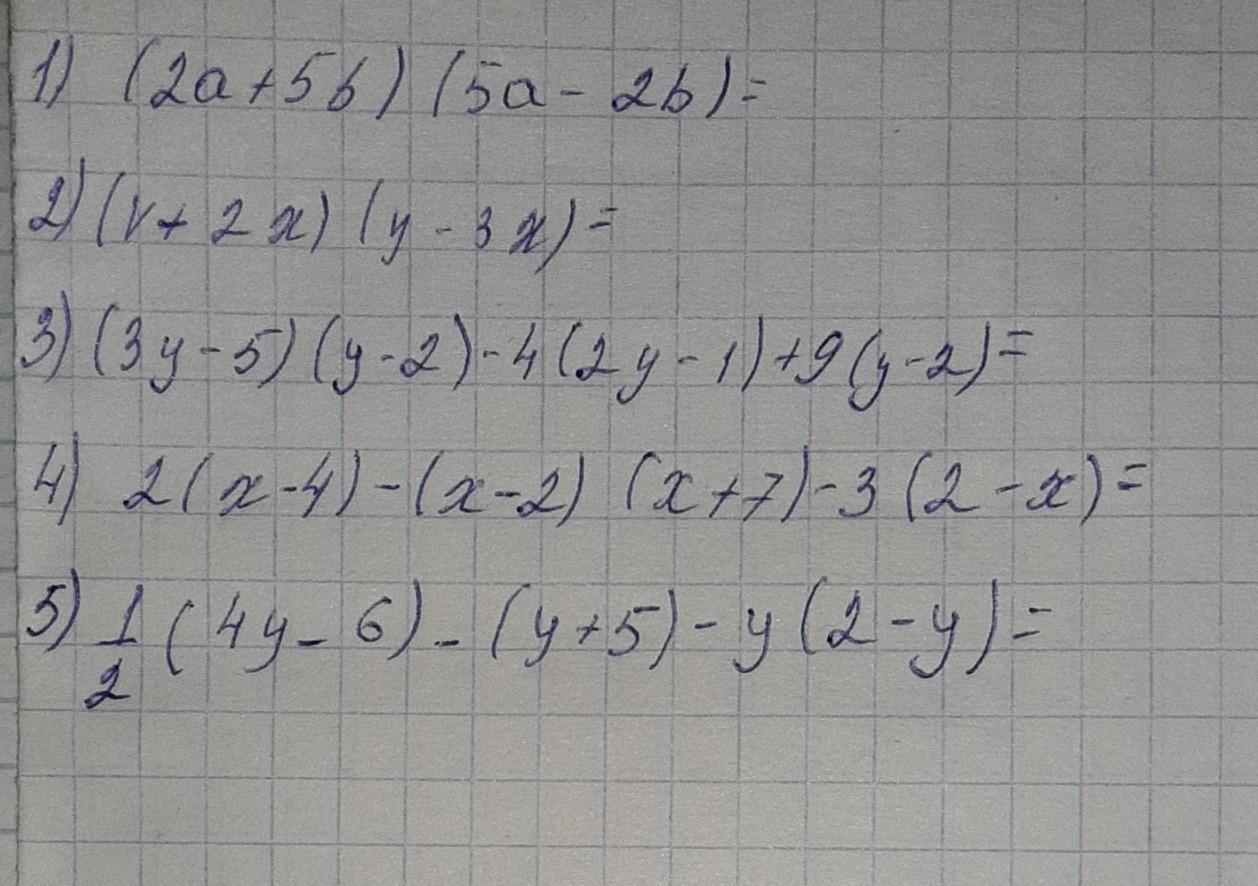 1) (2a+5b) (5a - 2b)=
2) (v + 2x) (y - 3x)=
3) (3y-5) (y-2)-4(2y-1)+9(y-2)=
4) 2(x-4)-(x-2) (x+7)-3(2-x)=
5) 1/2 (4y-6)-(y+5)-y(2-y)=